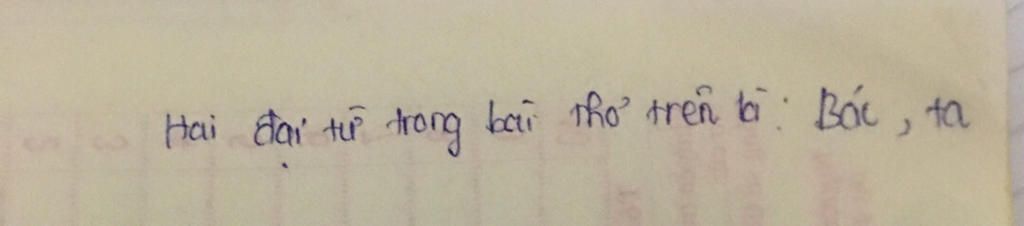 Hai đại từ trong bài thơ trên là: Bác, ta